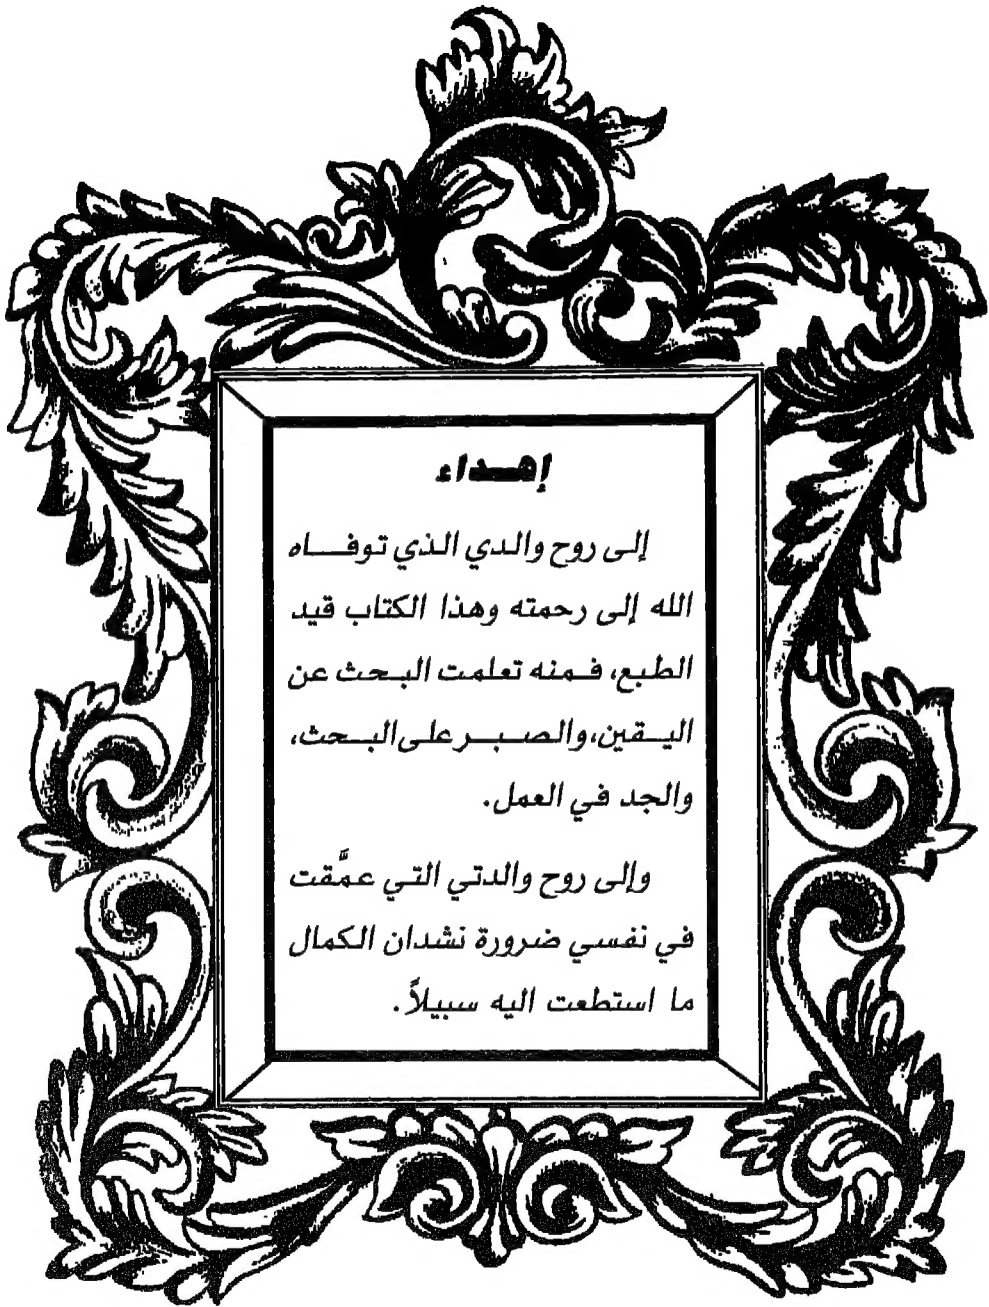 إهداء
إلى روح والدي الذي توفاه
الله إلى رحمته وهذا الكتاب قيد
الطبع، فمنه تعلمت البحث عن
اليقين، والصبر على البحث،
والجد في العمل.
وإلى روح والدتي التي عمَّقت
في نفسي ضرورة نشدان الكمال
ما استطعت اليه سبيلاً.